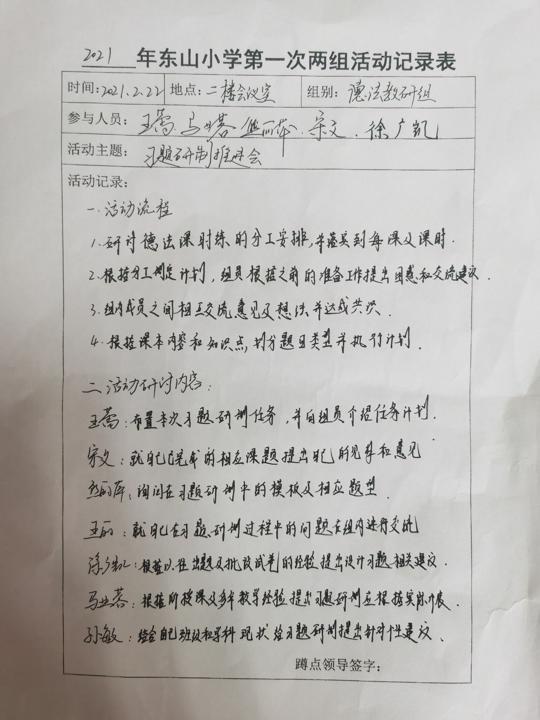 2021 年东山小学第一次两组活动记录表
时间:2021.2.22 地点:二楼会议室 组别:德法教研组
参与人员:王蕾 马业蓉 宋文、徐广凯
活动主题:习题研制推进会
活动记录:
一.活动流程
1.研讨德法课时练的分工安排,并落实到每课及课时.
2.根据分工制定计划,组员根据之前的准备工作提出困惑和交流建议.
3.组内成员之间相互交流意见及想法并达成共识.
4.根据课本内容和知识点,划分题目类型并执行计划.
二.活动研讨内容:
王蕾:布置本次习题研制任务,并向组员介绍任务计划.
宋文:就自己已完成的相应课题提出自己的见解和意见
询问在习题研制中的模板及相应题型.
王丽:就自己在习题研制过程中的问题在组内进行交流
徐广凯:根据以往出题及批改试卷的经验提出设计习题相关建议.
马业蓉:根据所教课及多年教学经验提出习题研制应根据实际开展.
孙敏:结合自己班级和学科现状给习题研制提出针对性建议.
蹲点领导签字: